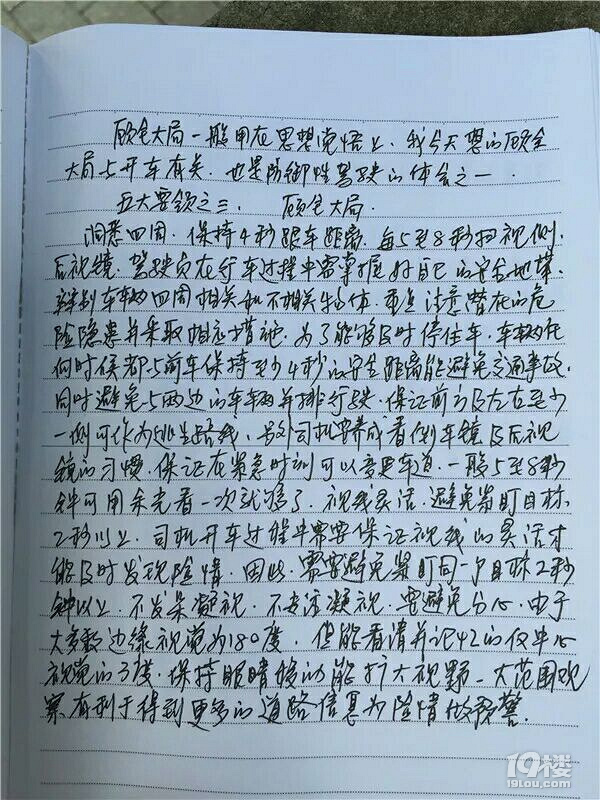 顾全大局一般用在思想觉悟上、我今天想的顾全
大局与开车有关、也是防御性驾驶的体会之一.
五大要领之三、顾全大局.
洞悉四周.保持4秒跟车距离.每5至8秒扫视侧.
后视镜.驾驶员在行车过程中需掌握好自己的安全地带.
辨别车辆四周相关和不相关物体.重点注意潜在的危
险隐患并采取相应措施.为了能够及时停住车.车辆任
何时候都与前车保持至少4秒的安全距离能避免交通事故.
同时避免与两边的车辆并排行驶.保证前方及左右至少
一侧可作为逃生路线.另外司机要养成看倒车镜及后视
镜的习惯.保证在紧急时刻可以变更车道.一般5至8秒
钟可用余光看一次就够了.视线灵活.避免紧盯目标
2秒以上.司机开车过程中需要保证视线的灵活才
能及时发现险情.因此.需要避免紧盯同一个目标2秒
钟以上.不发呆凝视.不专注凝视.要避免分心.由于
大多数边缘视觉为180度.但能看清并记忆的仅中心
视觉的3度.保持眼睛移动能扩大视野.大范围观
察有利于得到更多的道路信息为险情做预警.
19楼
19lou.com